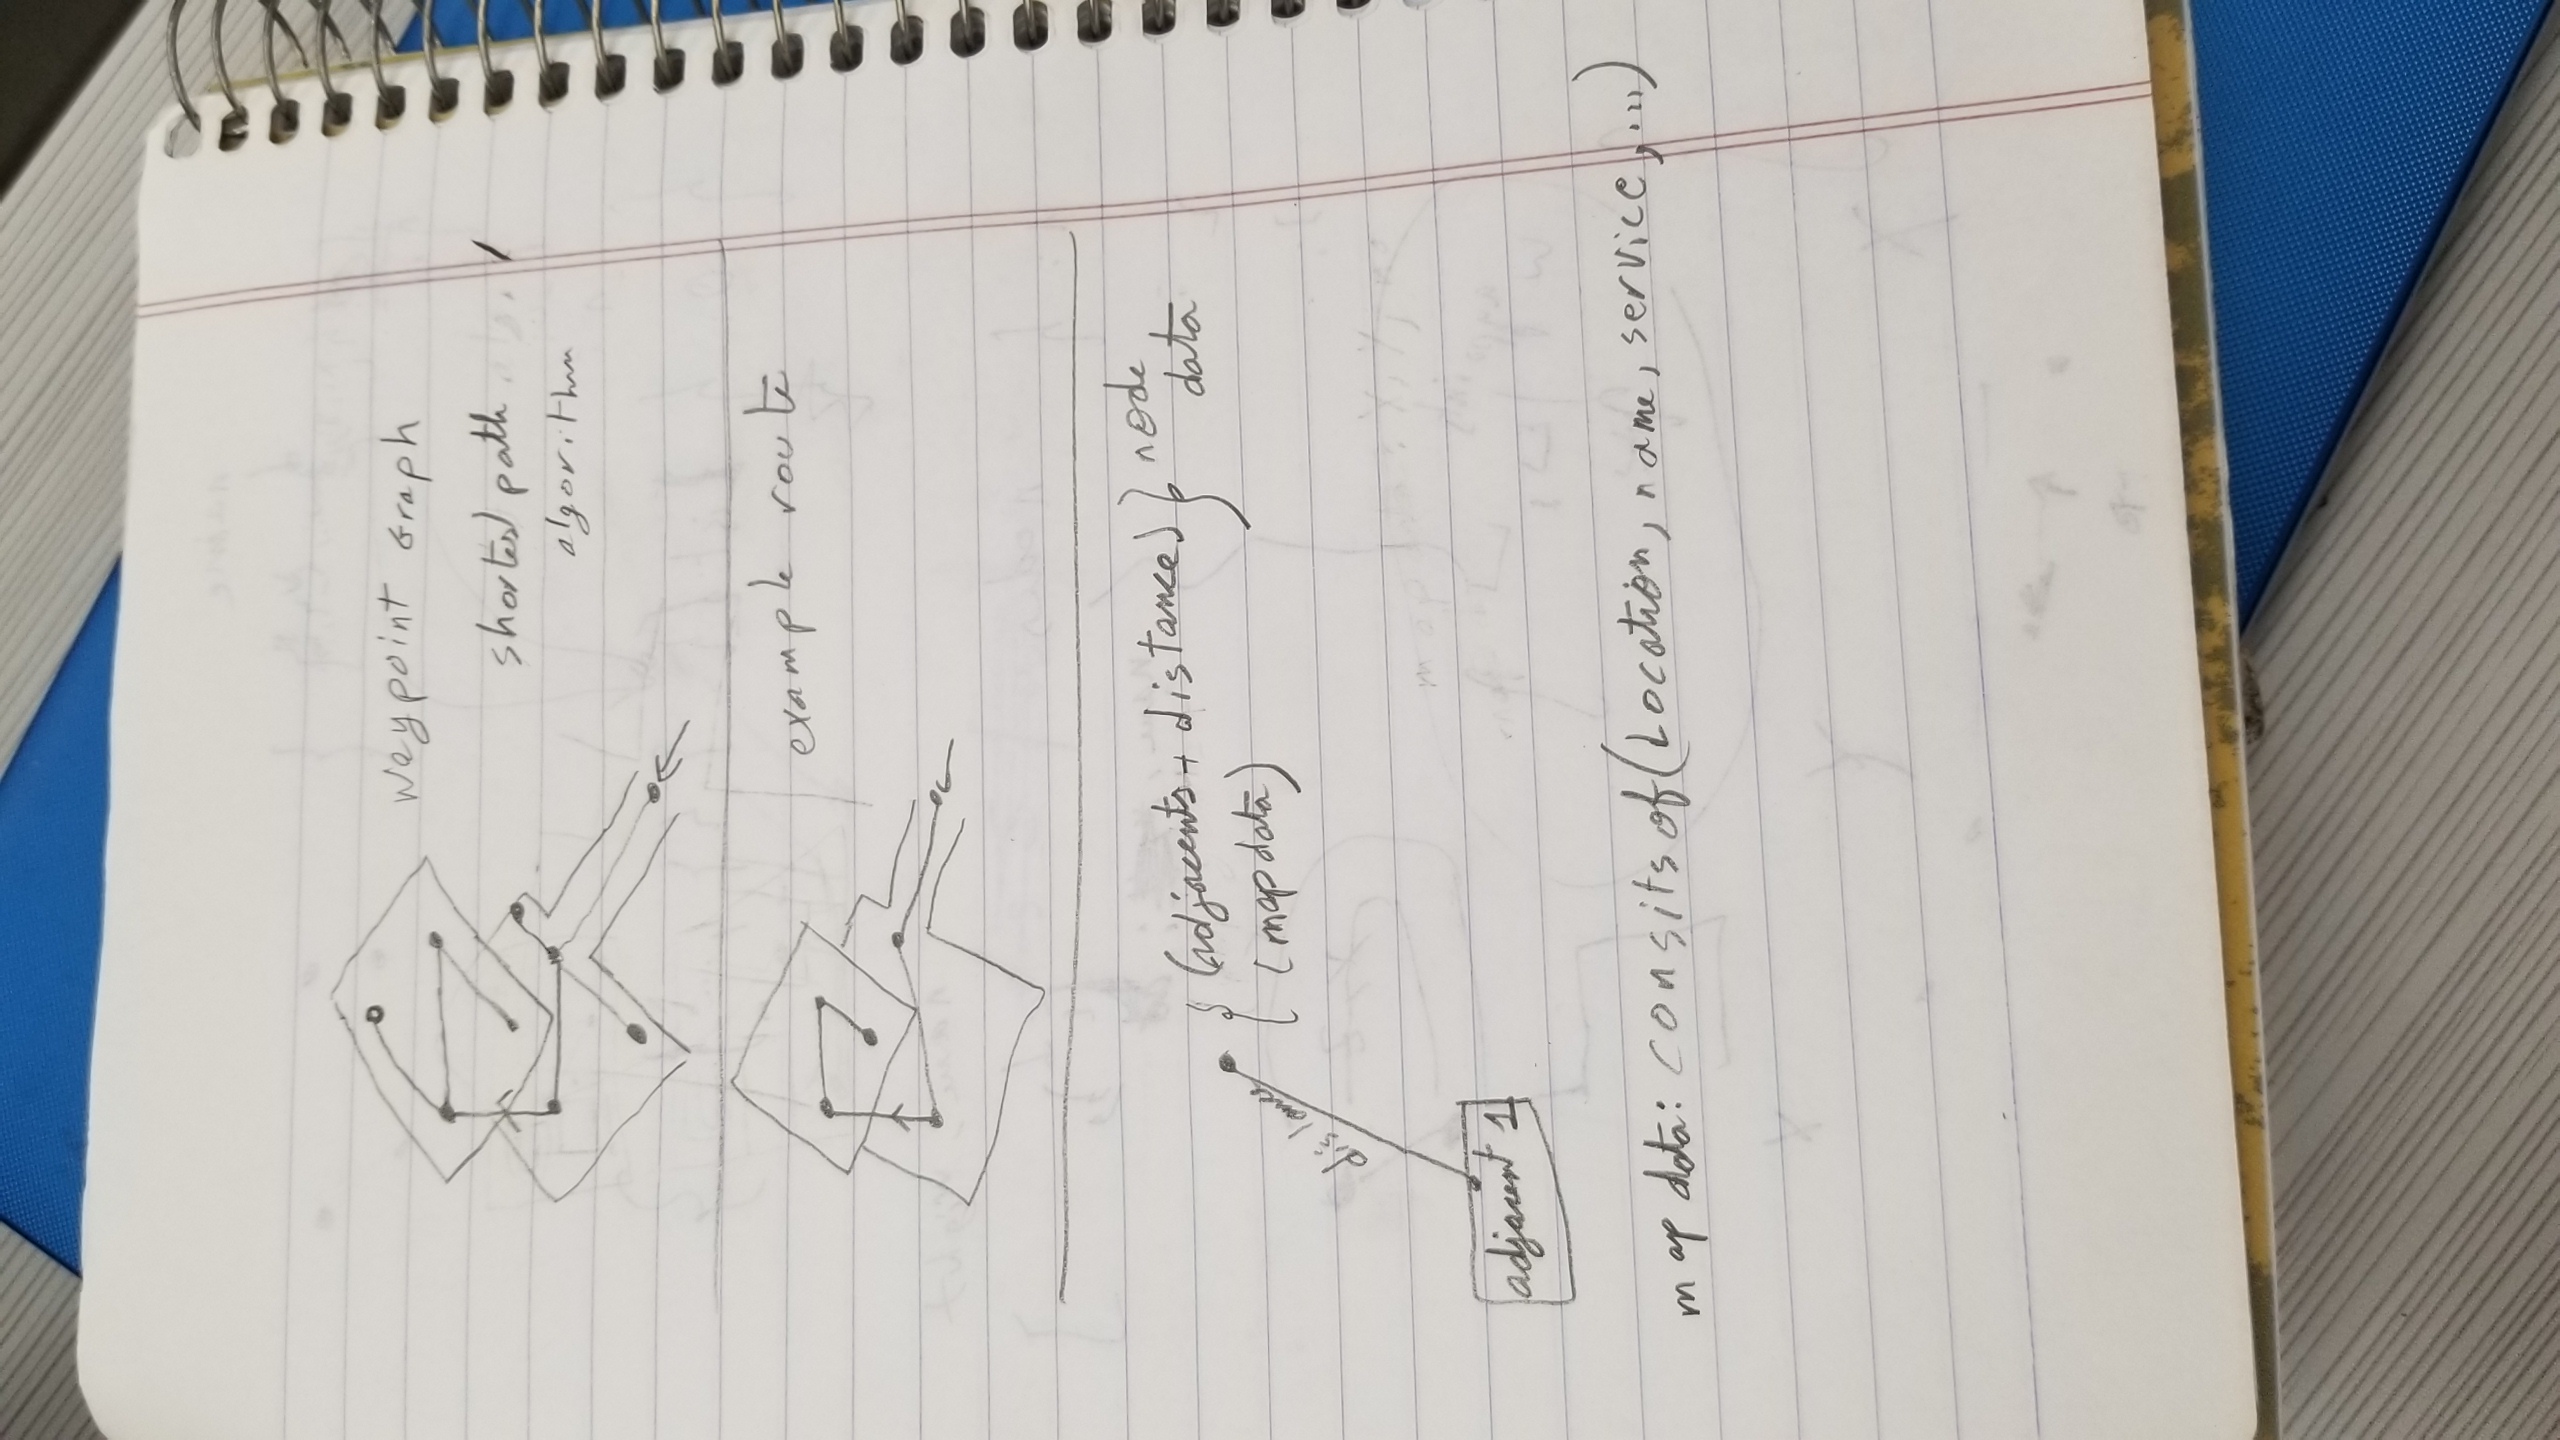 waypoint Graph
shortest path
algorithm
example route
{ (adjacents + distance) } node
data
(map data)
distance
adjacent 1
map data: consits of (Location, name, service, ...)